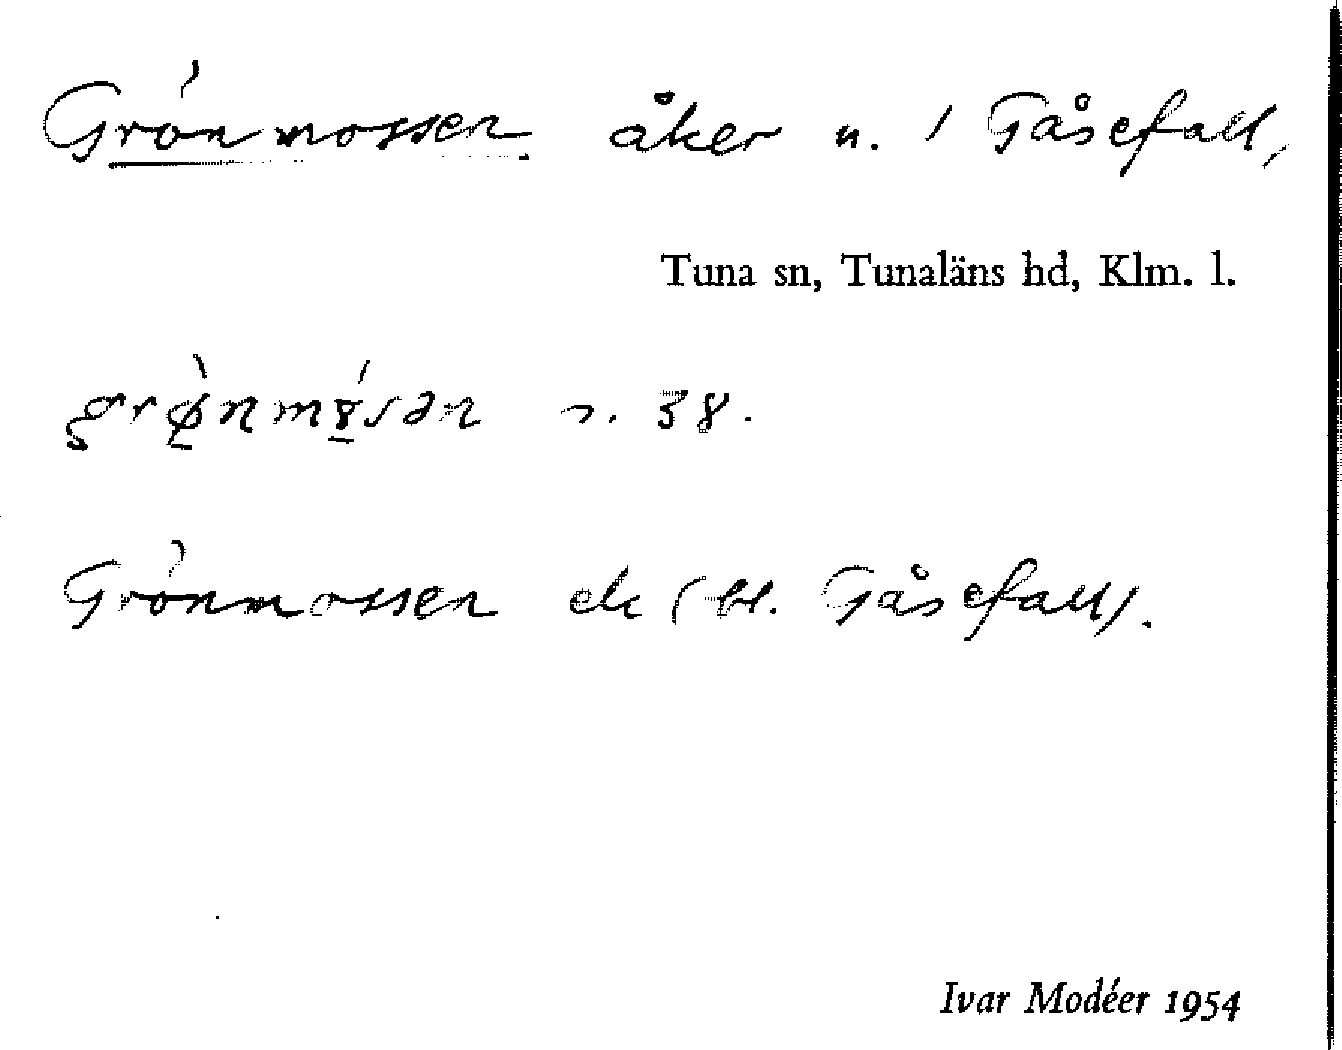 Grönmossen åker n. / Gåsefall,
Tuna sn, Tunaläns hd, Klm. l.
grø̀nmɤ́sən s. 38.
Grönmossen ek (bl. Gåsefall).
Ivar Modéer 1954